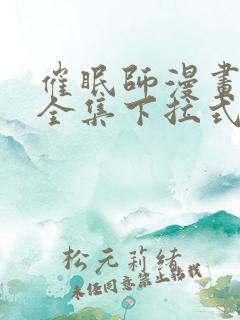 催眠師漫畫
全集下拉式
松元莉緒
未经同意禁止转载